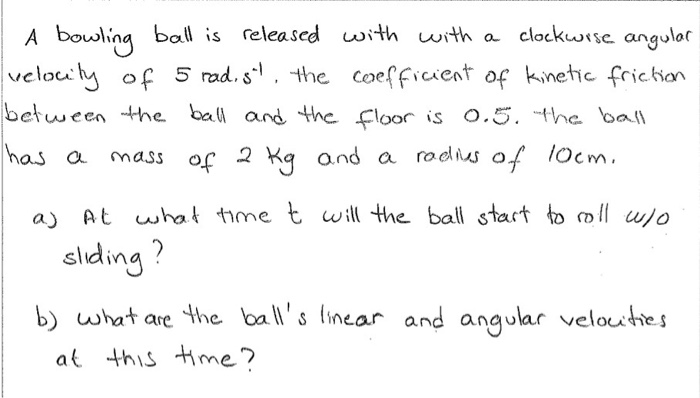 A bowling ball is released with with a clockwise angular
velocity of 5 rad.s⁻¹. the coefficient of kinetic friction
between the ball and the floor is 0.5. the ball
has a mass of 2 kg and a radius of 10cm.
a) At what time t will the ball start to roll w/o
sliding?
b) what are the ball's linear and angular velocities
at this time?